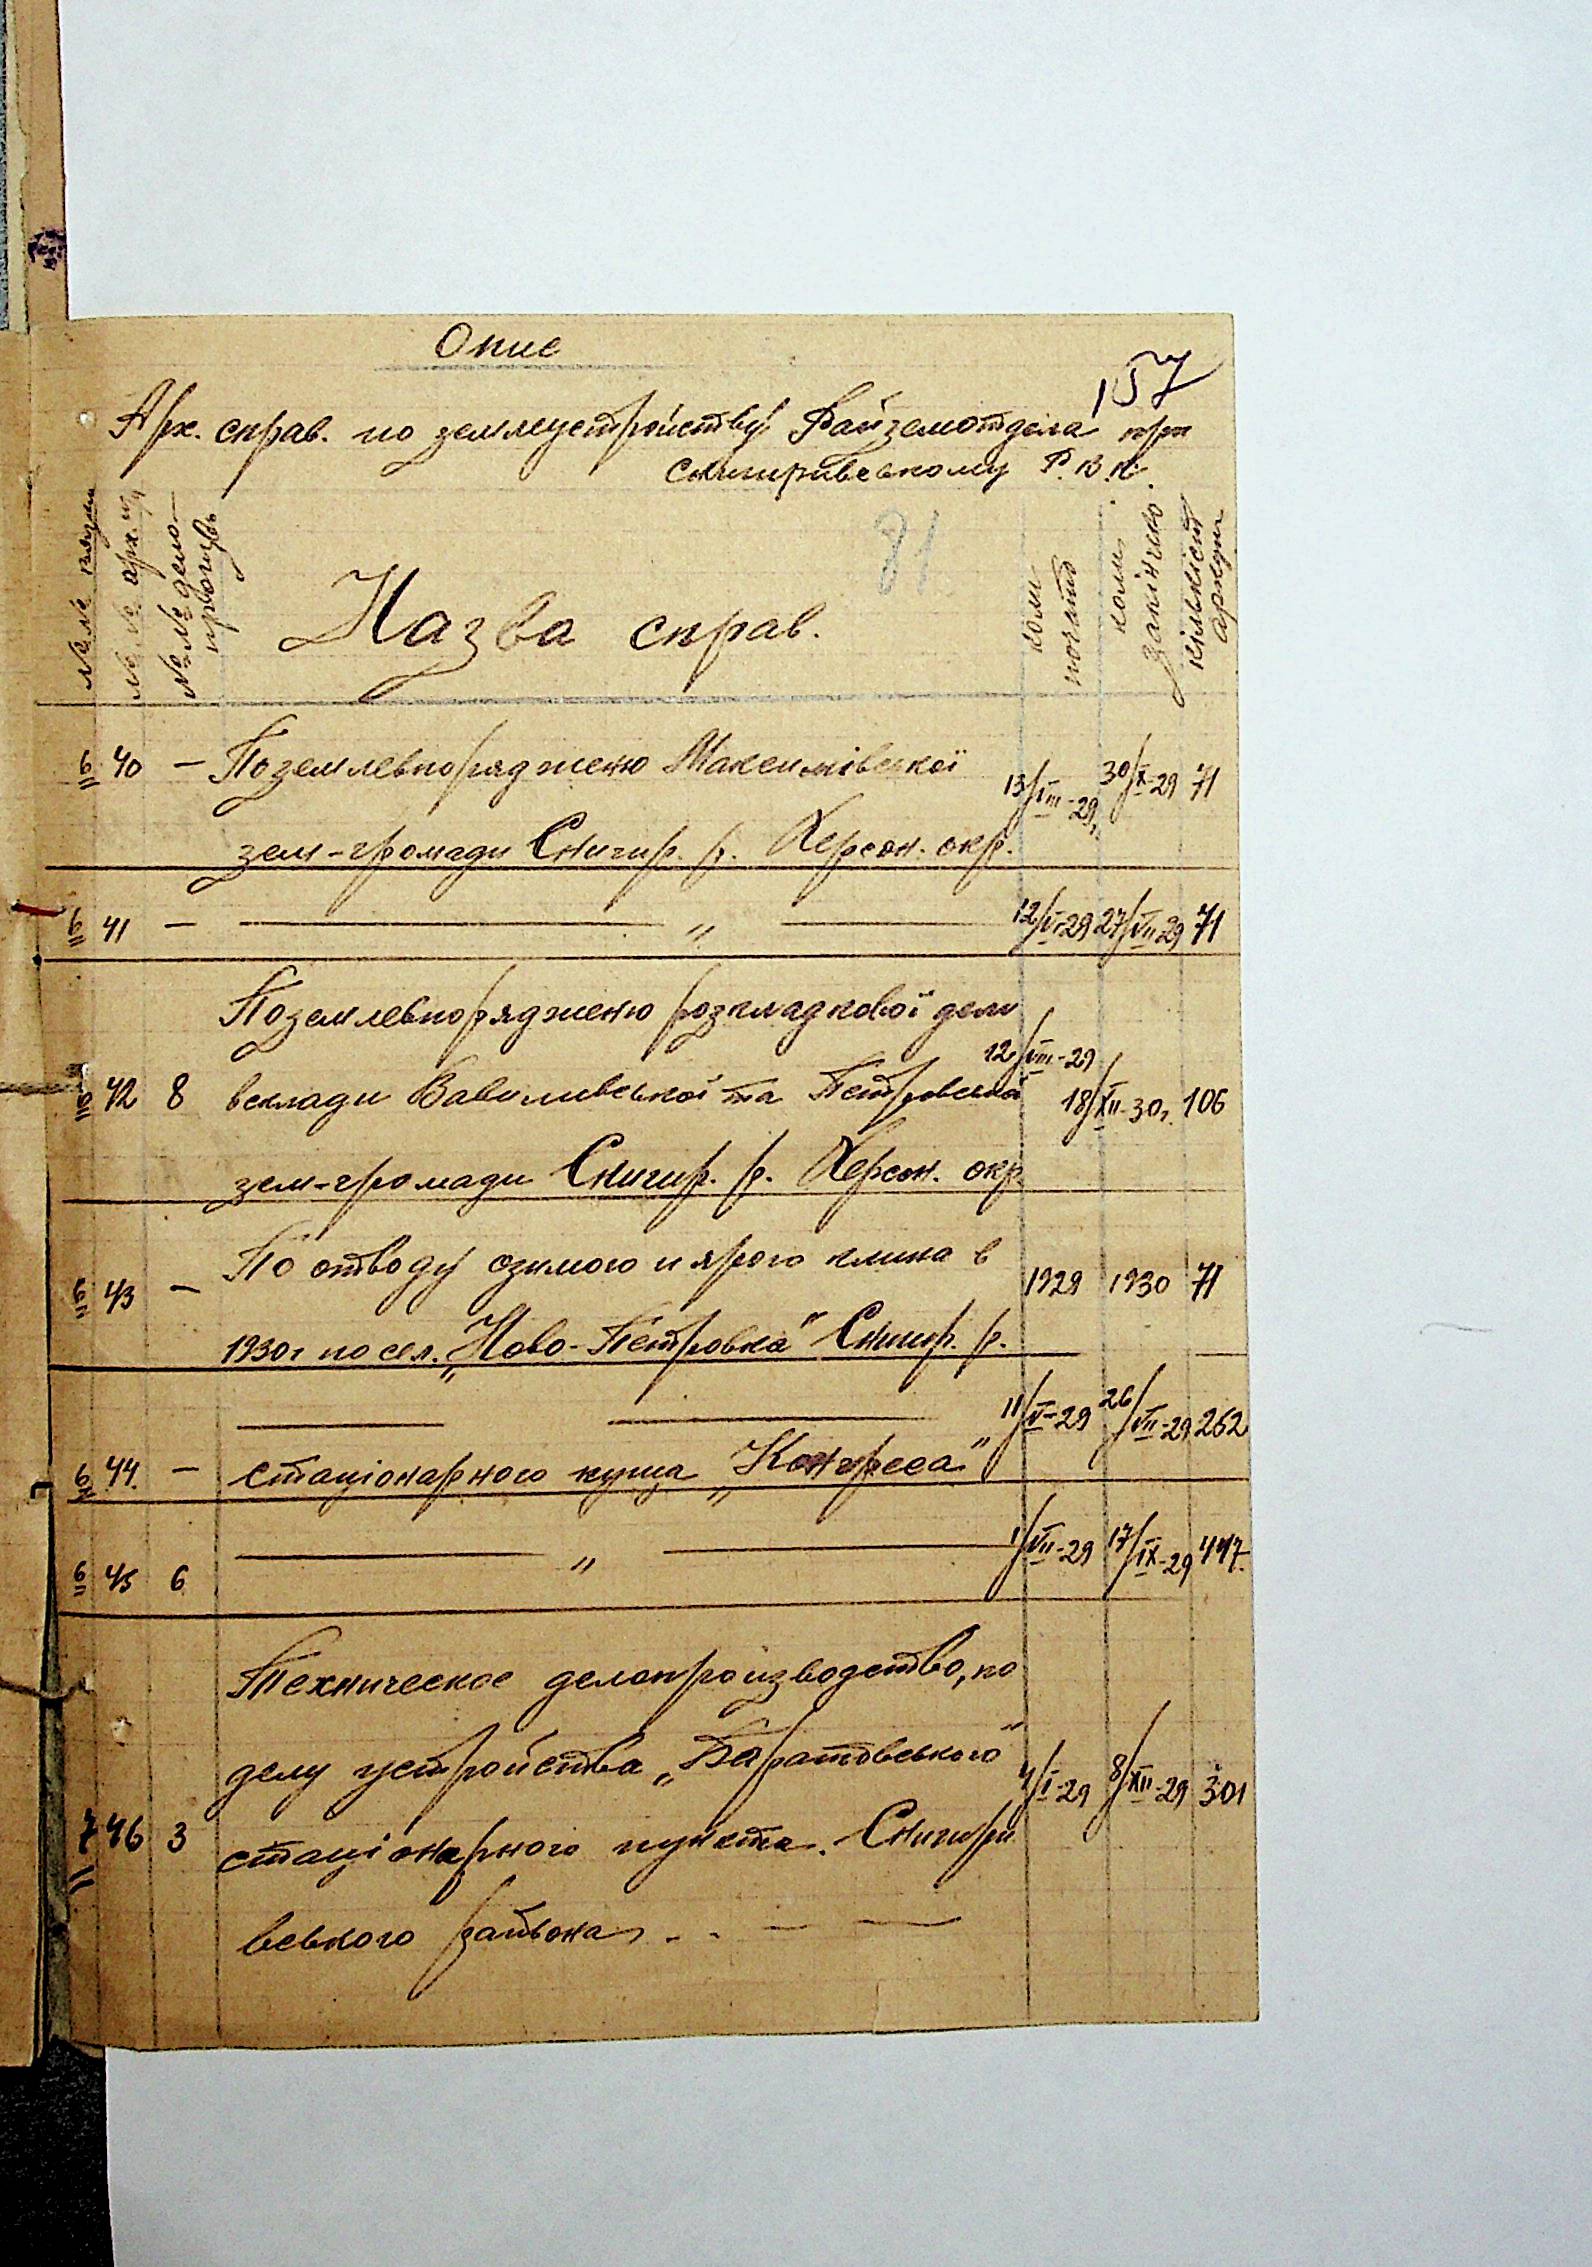 Опис
157
Арх. справ. по землеустройству Райземотдела при
Снигиривському Р.В.К.
81
№№ вязки
№№ арх.
№№ дело-
провадж
Назва справ.
коли
почато
коли
закінчено
кількість
аркуш
6 40 — По землевпорядженю Максимівської 13/VIII-29 30/X-29 71
зем-громади Снигир. р. Херсон. окр.
6 41 — — „ — 12/VI-29 27/VII-29 71
По землевпорядженю розкладкової дели
12/VIII-29
6 42 8 вклади Вавиливської та Петровської 18/XII-30г. 106
зем-громади Снигир. р. Херсон. окр
По отводу озимого и ярого клина в
6 43 — 1929 1930 71
1930г по сел. „Ново-Петровка" Снигир. р.
— — 11/V-29 26/VII-29 262
6 44. — стаціонарного куща „Конгреса"
— „ — 1/VII-29 17/IX-29 447.
6 45 6
Техническое делопроизводство, по
делу устройства „Баратовського"
4/I-29 8/XII-29 301
7 46 3 стаціонарного пункта. Снигири
вського района . . — —